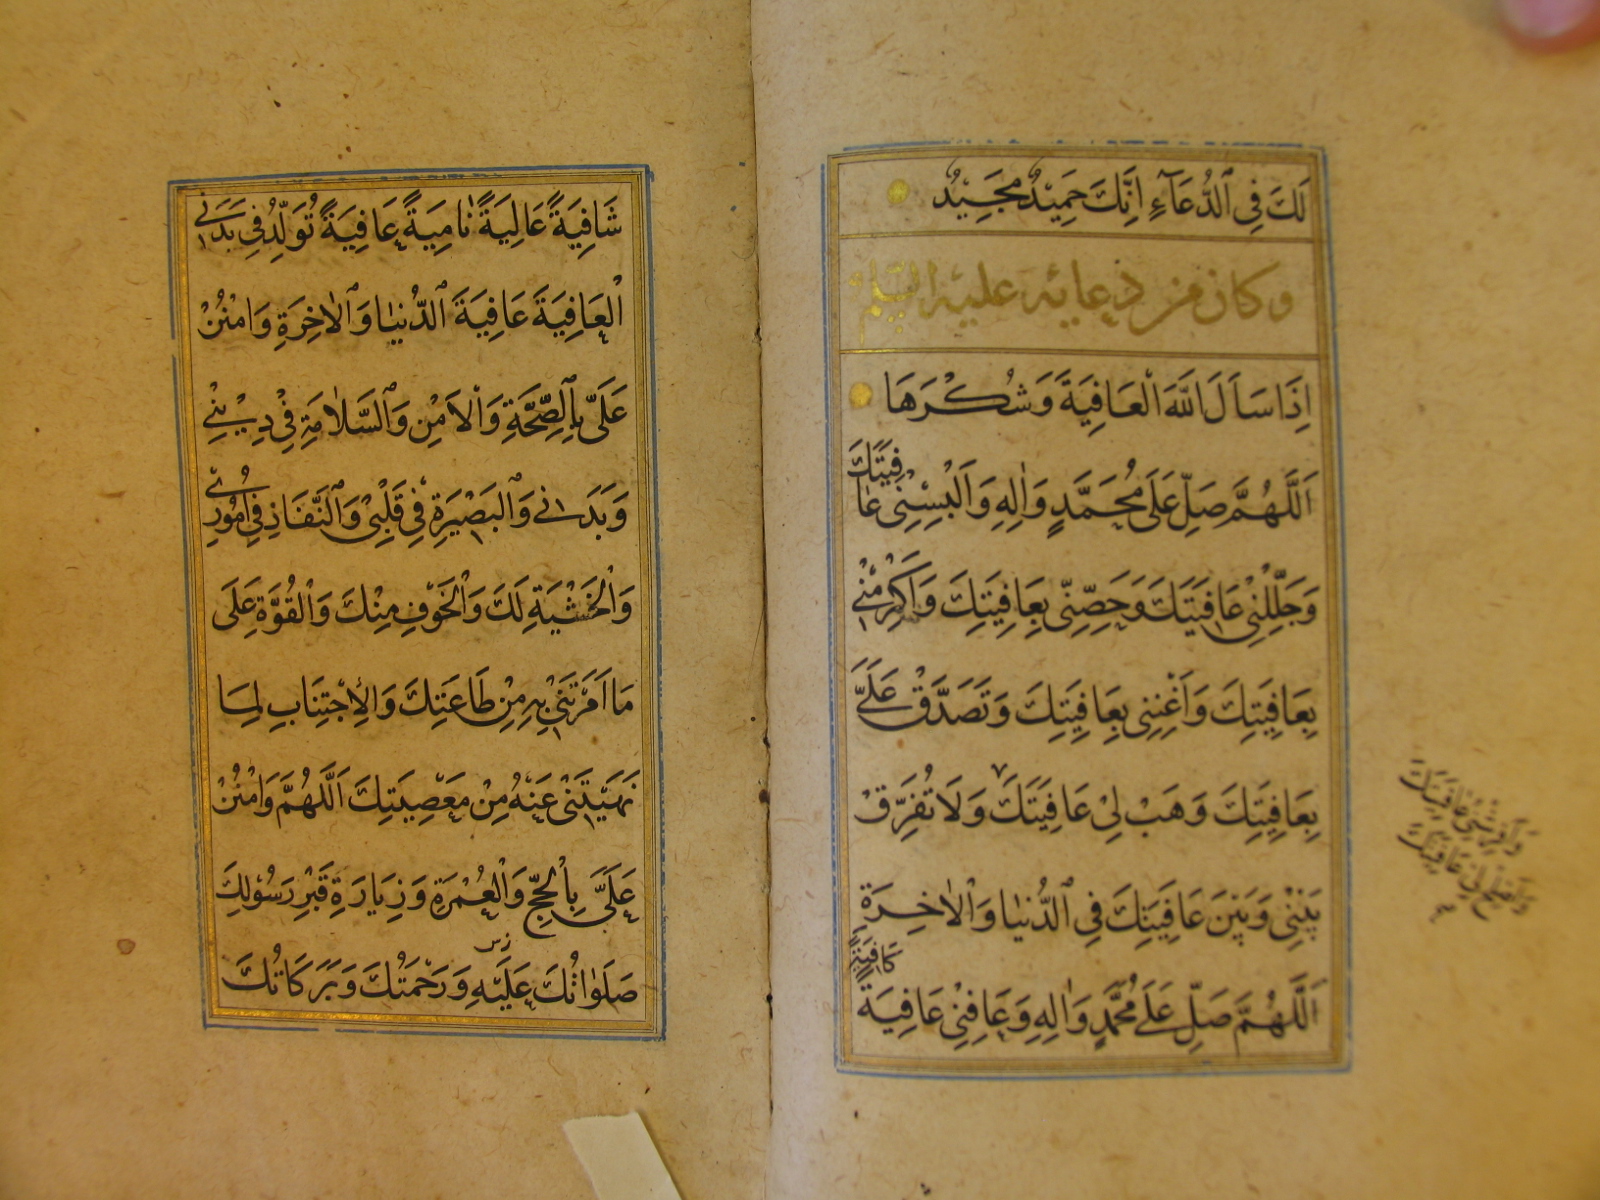 لَكَ فِي الدُّعَآءِ اِنَّكَ حَمِيْدٌ مَجِيْدٌ
وكان من دعائه عليه السلام
اِذَا سَاَلَ اللّٰهَ الْعَافِيَةَ وَشُكْرَهَا
اَللّٰهُمَّ صَلِّ عَلَى مُحَمَّدٍ وَاٰلِهِ وَاَلْبِسْنِى عَافِيَتَكَ
وَجَلِّلْنِىْ عَافِيَتَكَ وَحَصِّنِّى بِعَافِيَتِكَ وَاَكْرِمْنِىْ
بِعَافِيَتِكَ وَاَغْنِنِى بِعَافِيَتِكَ وَتَصَدَّقْ عَلَىَّ
بِعَافِيَتِكَ وَهَبْ لِىْ عَافِيَتَكَ وَلَا تُفَرِّقْ
بَيْنِىْ وَبَيْنَ عَافِيَتِكَ فِي الدُّنْيَا وَالْاٰخِرَةِ
اَللّٰهُمَّ صَلِّ عَلَى مُحَمَّدٍ وَاٰلِهِ وَعَافِنِىْ عَافِيَةً كَافِيَةً
وَاَفْرِشْنِىْ عَافِيَتَكَ
وَاَصْلِحْ لِىْ عَافِيَتَكَ
شَافِيَةً عَالِيَةً نَامِيَةً عَافِيَةً تُوَلِّدُ فِى بَدَنِى
الْعَافِيَةَ عَافِيَةَ الدُّنْيَا وَالْاٰخِرَةِ وَامْنُنْ
عَلَىَّ بِالصِّحَّةِ وَالْاَمْنِ وَالسَّلَامَةِ فِىْ دِيْنِىْ
وَبَدَنِى وَالْبَصِيْرَةِ فِى قَلْبِىْ وَالنَّفَاذِ فِى اُمُوْرِىْ
وَالْخَشْيَةِ لَكَ وَالْخَوْفِ مِنْكَ وَالْقُوَّةِ عَلَى
مَا اَمَرْتَنِىْ بِهِ مِنْ طَاعَتِكَ وَالْاِجْتِنَابِ لِمَا
نَهَيْتَنِىْ عَنْهُ مِنْ مَعْصِيَتِكَ اَللّٰهُمَّ وَامْنُنْ
عَلَىَّ بِالْحَجِّ وَالْعُمْرَةِ وَزِيَارَةِ قَبْرِ رَسُوْلِكَ
صَلَوَاتُكَ عَلَيْهِ وَرَحْمَتُكَ وَبَرَكَاتُكَ